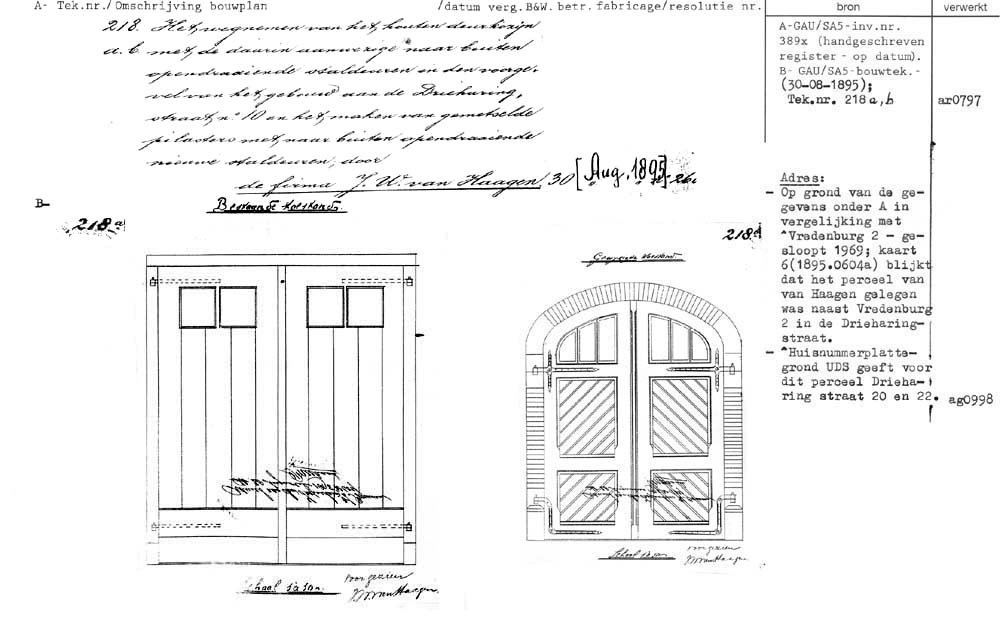 A- Tek.nr./ Omschrijving bouwplan /datum verg.B&W. betr. fabricage/resolutie nr. bron verwerkt
218. Het, wegnemen van het, houten deurkozijn
a. b. met, de daarin aanwezige naar buiten
opendraaiende staldeuren in den voorge-
vel van het, gebouw aan de Drieharing,
straat, nº 10 en het, maken van gemetselde
pilasters met, naar buiten opendraaiende
nieuwe staldeuren, door
de firma J. W. van Haagen, 30 [Aug. 1895]
A-GAU/SA5-inv.nr.
389x (handgeschreven
register - op datum).
B- GAU/SA5-bouwtek.-
(30-08-1895);
Tek.nr. 218 a, b ar0797
B-
Bestaande toestand
218 a
218
Adres:
- Op grond van de ge-
gevens onder A in
vergelijking met
^Vredenburg 2 - ge-
sloopt 1969; kaart
6(1895.0604a) blijkt
dat het perceel van
van Haagen gelegen
was naast Vredenburg
2 in de Drieharing-
straat.
- ^Huisnummerplatte-
grond UDS geeft voor
dit perceel Drieha-
ring straat 20 en 22. ag0998
Schaal
voor gezien
JW van Haagen
Schaal
voor gezien
JW van Haagen